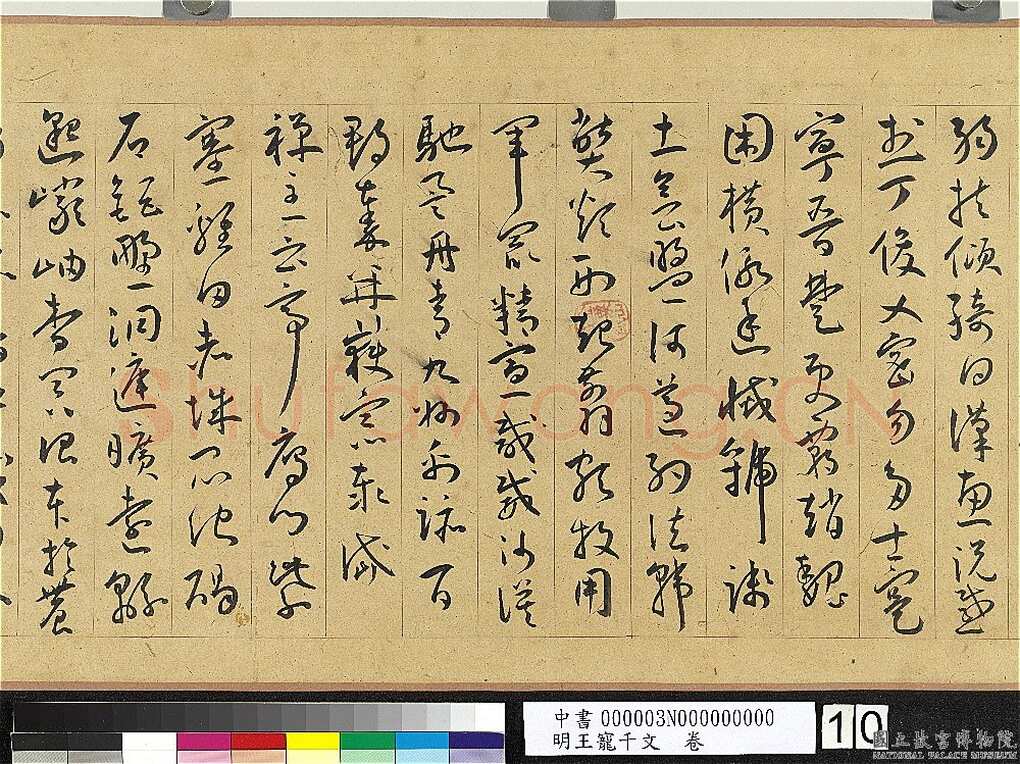 弱扶傾綺回漢惠說感
武丁俊乂密勿多士寔
寧晉楚更霸趙魏
困橫假途滅虢踐
土會盟何遵約法韓
弊煩刑起翦頗牧用
軍最精宣威威沙漠
馳譽丹青九州禹跡百
郡秦并嶽宗泰岱
禪主云亭雁門紫
塞雞田赤城昆池碣
石鉅野洞庭曠遠緜
邈巖岫杳冥治本於農
shufawang.CN
中書 000003N000000000
明王寵千文 卷
10
國立故宮博物院
NATIONAL PALACE MUSEUM